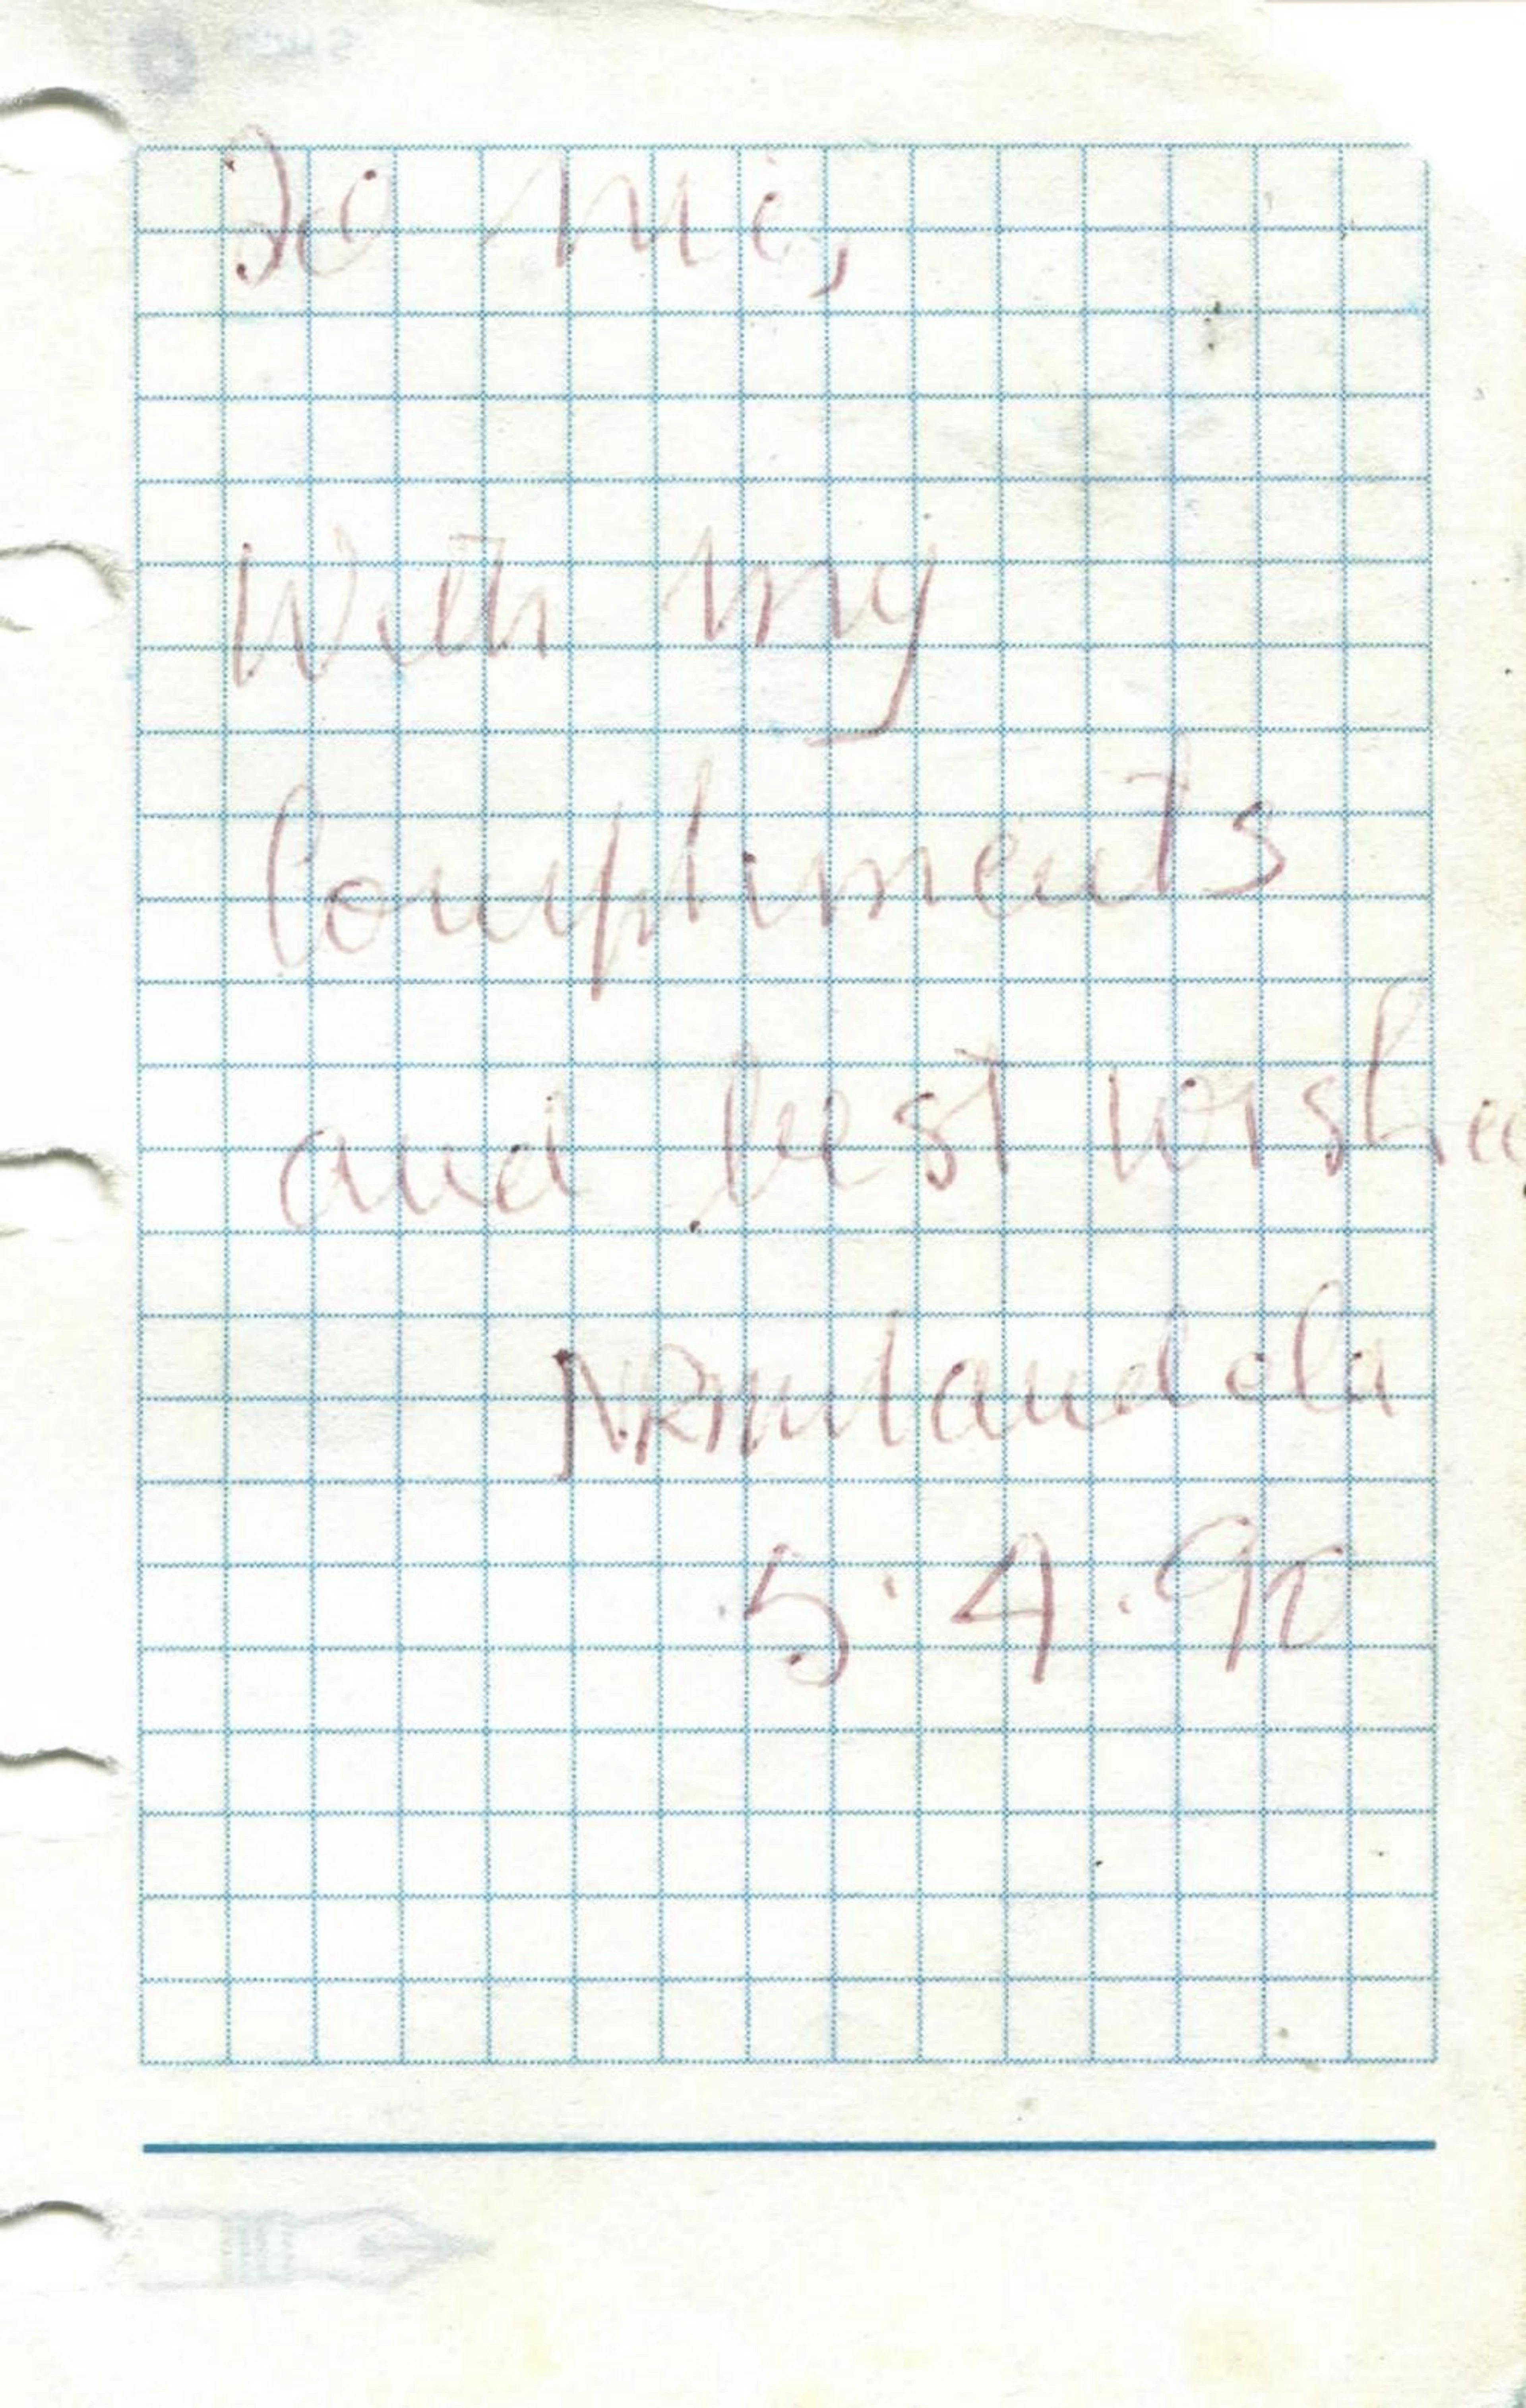 To Mi,
With my
Compliments
and best wishe
NRMandela
5.4.90